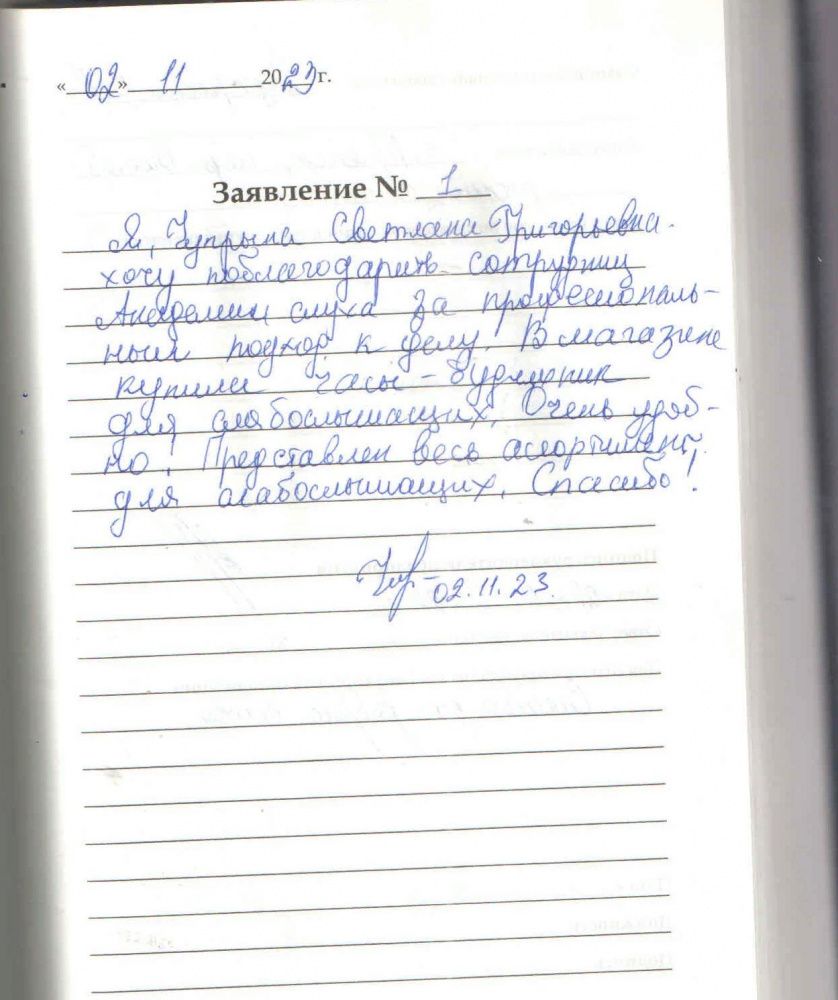 «02» 11 2023 г.
Заявление № 1
Я, Чупрына Светлана Григорьевна
хочу поблагодарить сотрудниц
Академии слуха за профессиональ-
ный подход к делу! В магазине
купили часы - будильник
для слабослышащих. Очень удоб-
но! Представлен весь ассортимент
для слабослышащих. Спасибо!
02.11.23.